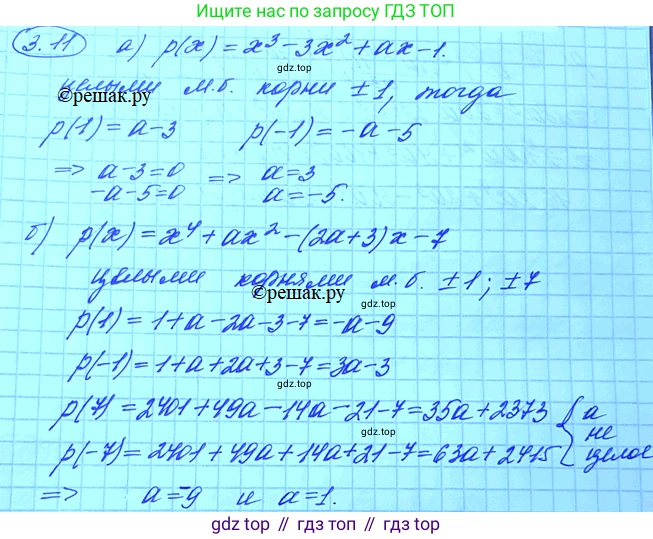 Ищите ответы по запросу ГДЗ ТОП
3.11 а) p(x) = x³ - 3x² + ax - 1.
gdz.top
целыми м.б. корни ±1, тогда
©решак.ру
p(1) = a - 3 p(-1) = -a - 5
gdz.top
=> a - 3 = 0 => a = 3
-a - 5 = 0 a = -5.
gdz.top
б) p(x) = x⁴ + ax² - (2a+3)x - 7
целыми корнями м.б. ±1; ±7
©решак.ру
gdz.top
p(1) = 1 + a - 2a - 3 - 7 = -a - 9
p(-1) = 1 + a + 2a + 3 - 7 = 3a - 3
gdz.top
p(7) = 2401 + 49a - 14a - 21 - 7 = 35a + 2373 { a
не
p(-7) = 2401 + 49a + 14a + 21 - 7 = 63a + 2415 целое
gdz.top
=> a = -9 и a = 1.
gdz top // гдз топ // gdz.top